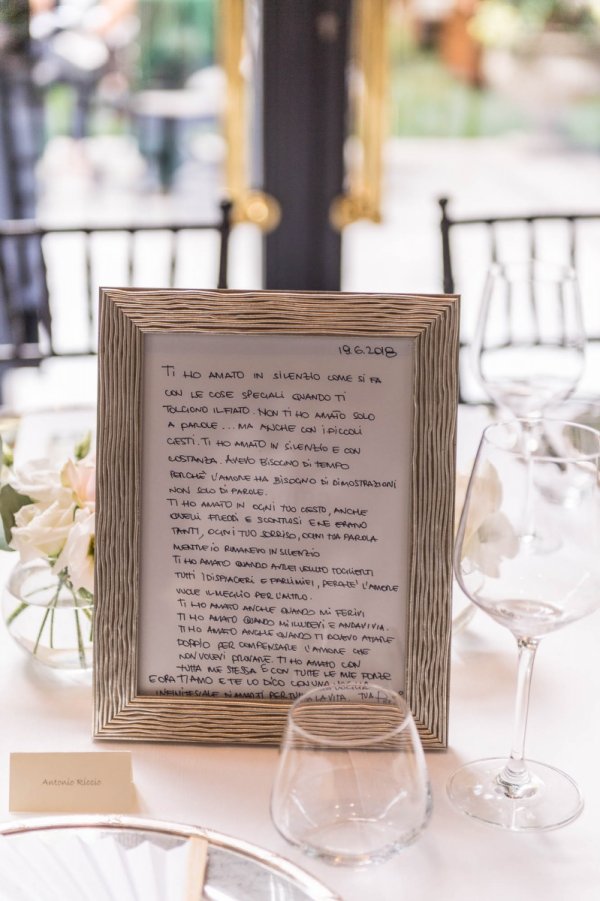 19.6.2018
TI HO AMATO IN SILENZIO COME SI FA
CON LE COSE SPECIALI QUANDO TI
TOLGONO IL FIATO. NON TI HO AMATO SOLO
A PAROLE... MA ANCHE CON I PICCOLI
GESTI. TI HO AMATO IN SILENZIO E CON
COSTANZA. AVEVO BISOGNO DI TEMPO
PERCHÈ L'AMORE HA BISOGNO DI DIMOSTRAZIONI
NON SOLO DI PAROLE.
TI HO AMATO IN OGNI TUO GESTO, ANCHE
QUELLI FREDDI E SCONTROSI E NE ERANO
TANTI, OGNI TUO SORRISO, OGNI TUA PAROLA
MENTRE IO RIMANEVO IN SILENZIO
TI HO AMATO QUANDO AVREI VOLUTO TOGLIERTI
TUTTI I DISPIACERI E FARLI MIEI, PERCHÈ L'AMORE
VUOLE IL MEGLIO PER L'ALTRO.
TI HO AMATO ANCHE QUANDO MI FERIVI
TI HO AMATO QUANDO MI ILLUDEVI E ANDAVI VIA.
TI HO AMATO ANCHE QUANDO TI DOVEVO AMARE
DOPPIO PER COMPENSARE L'AMORE CHE
NON VOLEVI PROVARE. TI HO AMATO CON
TUTTA ME STESSA E CON TUTTE LE MIE FORZE
E ORA TI AMO E TE LO DICO CON UNA VOGLIA
DI AMARTI PER TUTTA LA VITA. TUA
Antonio Riccio